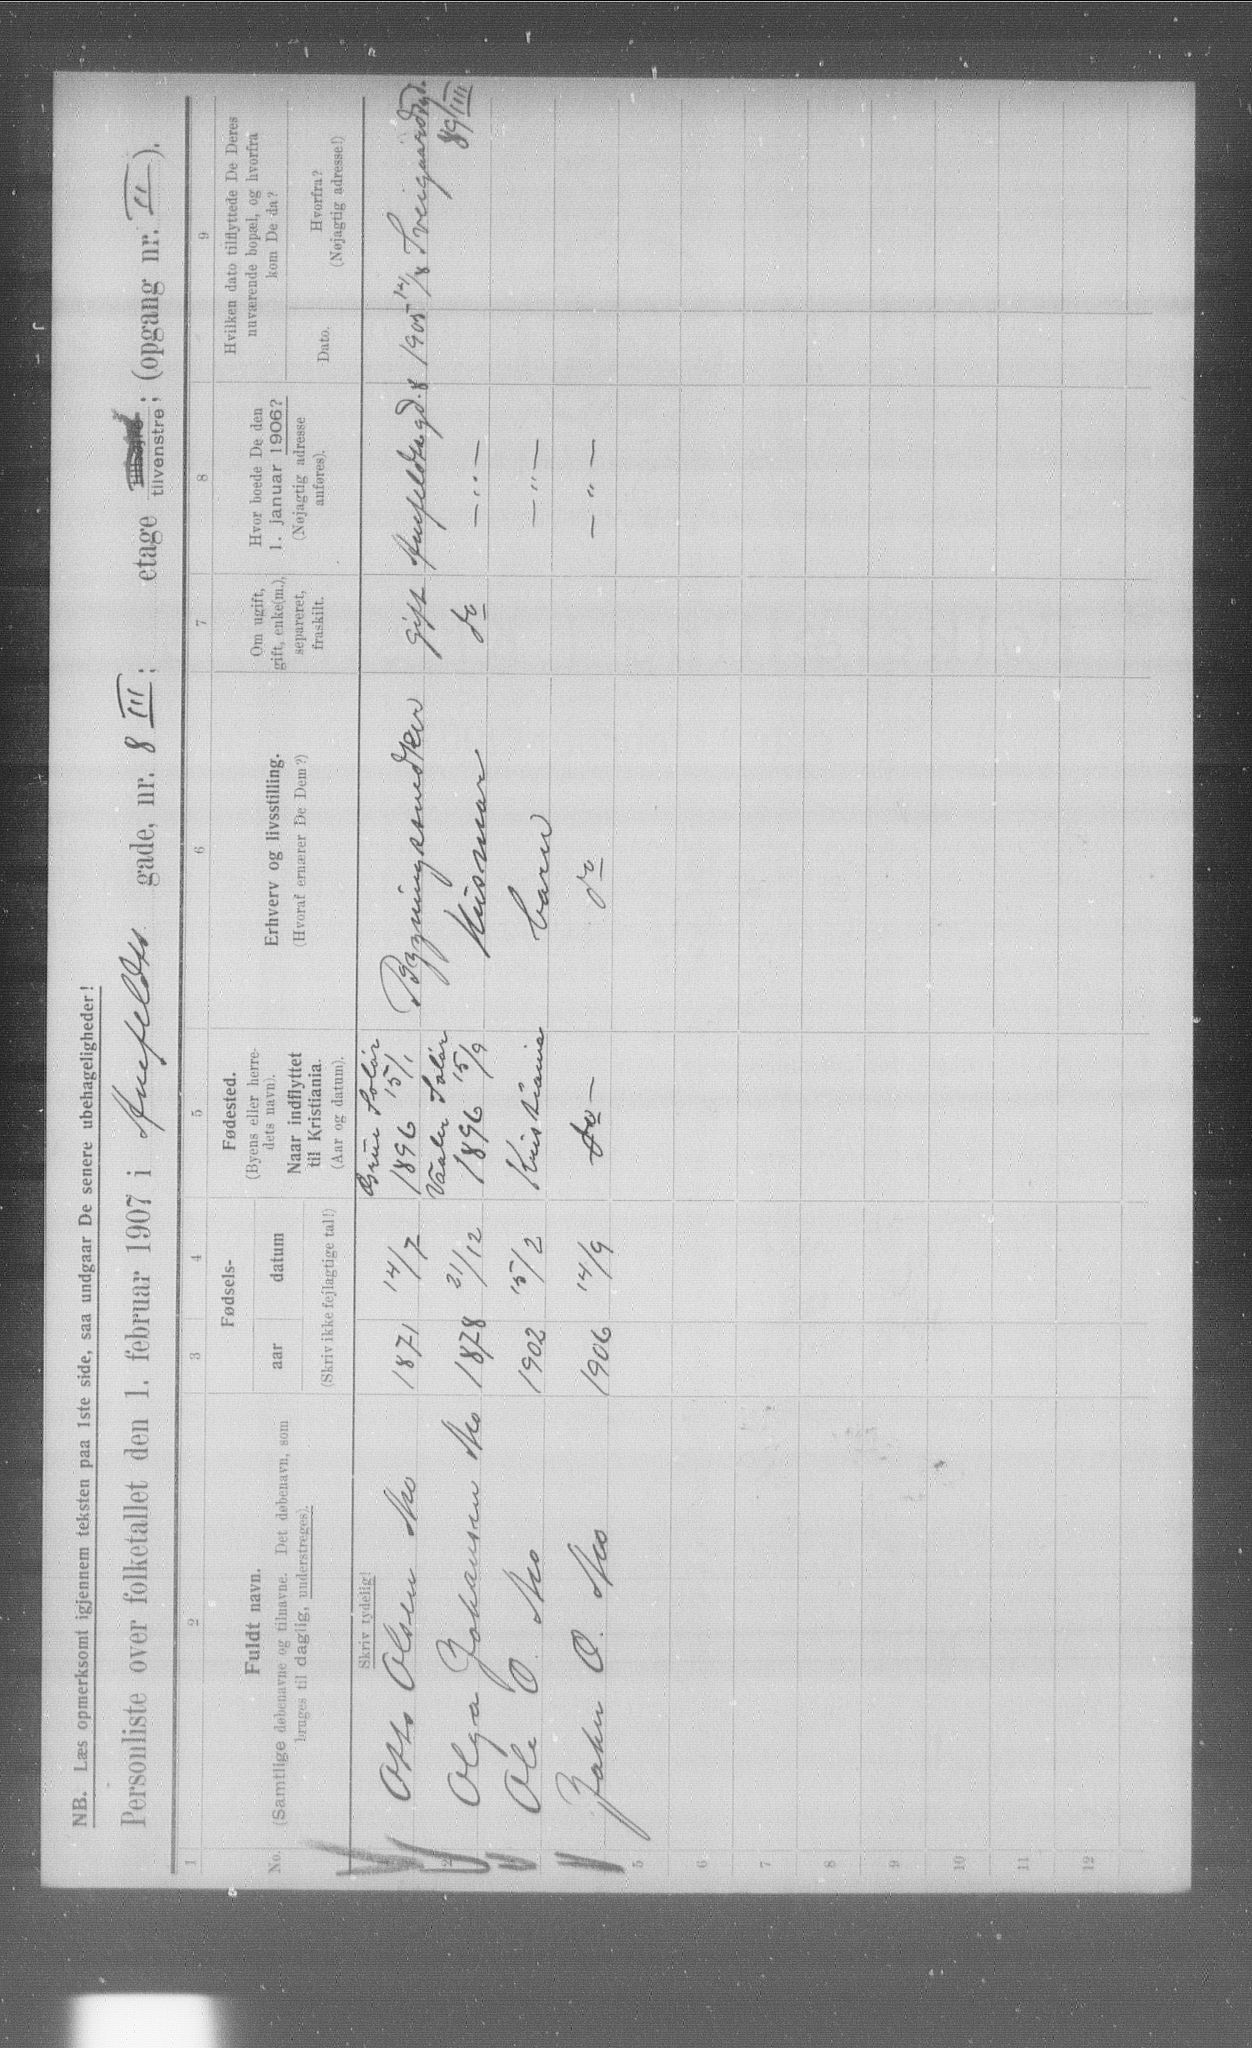 NB. Læs opmerksomt igjennem teksten paa 1ste side, saa undgaar De senere ubehageligheder!
Personliste over folketallet den 1. februar 1907 i Stuefeldts gade, nr. 8 III; etage tilvenstre; (opgang nr. II).
1 2 3 4 5 6 7 8 9
No.
Fuldt navn.
(Samtlige døbenavne og tilnavne. Det døbenavn, som
bruges til daglig, understreges).
Fødsels-
aar datum
(Skriv ikke fejlagtige tal!)
Fødested.
(Byens eller herre-
dets navn).
Naar indflyttet
til Kristiania.
(Aar og datum).
Erhverv og livsstilling.
(Hvoraf ernærer De Dem?)
Om ugift,
gift, enke(m.),
separeret,
fraskilt.
Hvor boede De den
1. januar 1906?
(Nøjagtig adresse
anføres).
Hvilken dato tilflyttede De Deres
nuværende bopæl, og hvorfra
kom De da?
Dato.
Hvorfra?
(Nøjagtig adresse!)
Skriv tydelig!
Otto Olsen Mo 1871 14/7 Grue Solør 1896 15/1 Bygningssnedker gift Stuefeldts gd. 8 1905 12/8 Sveigaardsgd. 89/III
2 Olga Johansen Mo 1878 21/12 Vaaler Solør 1896 15/9 Husmor do — " —
Ole O. Mo 1902 15/2 Kristiania barn — " —
Johan O. Mo 1906 14/9 do — do — " —
5
6
7
8
9
10
11
12